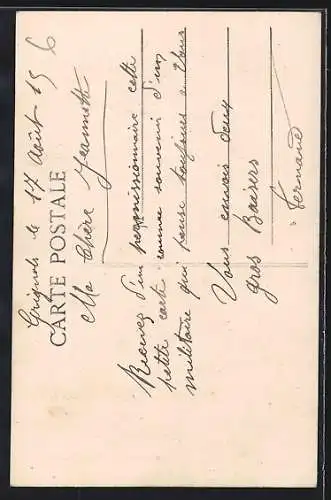 Grignols le 17 Août 15
CARTE POSTALE
Ma Chère Jeannette
Recevez d'un permissionnaire cette
petite cart comme souvenir d'un
militaire qui pense toujours a Vous
Vous envois deux
gros Baisers
Fernand